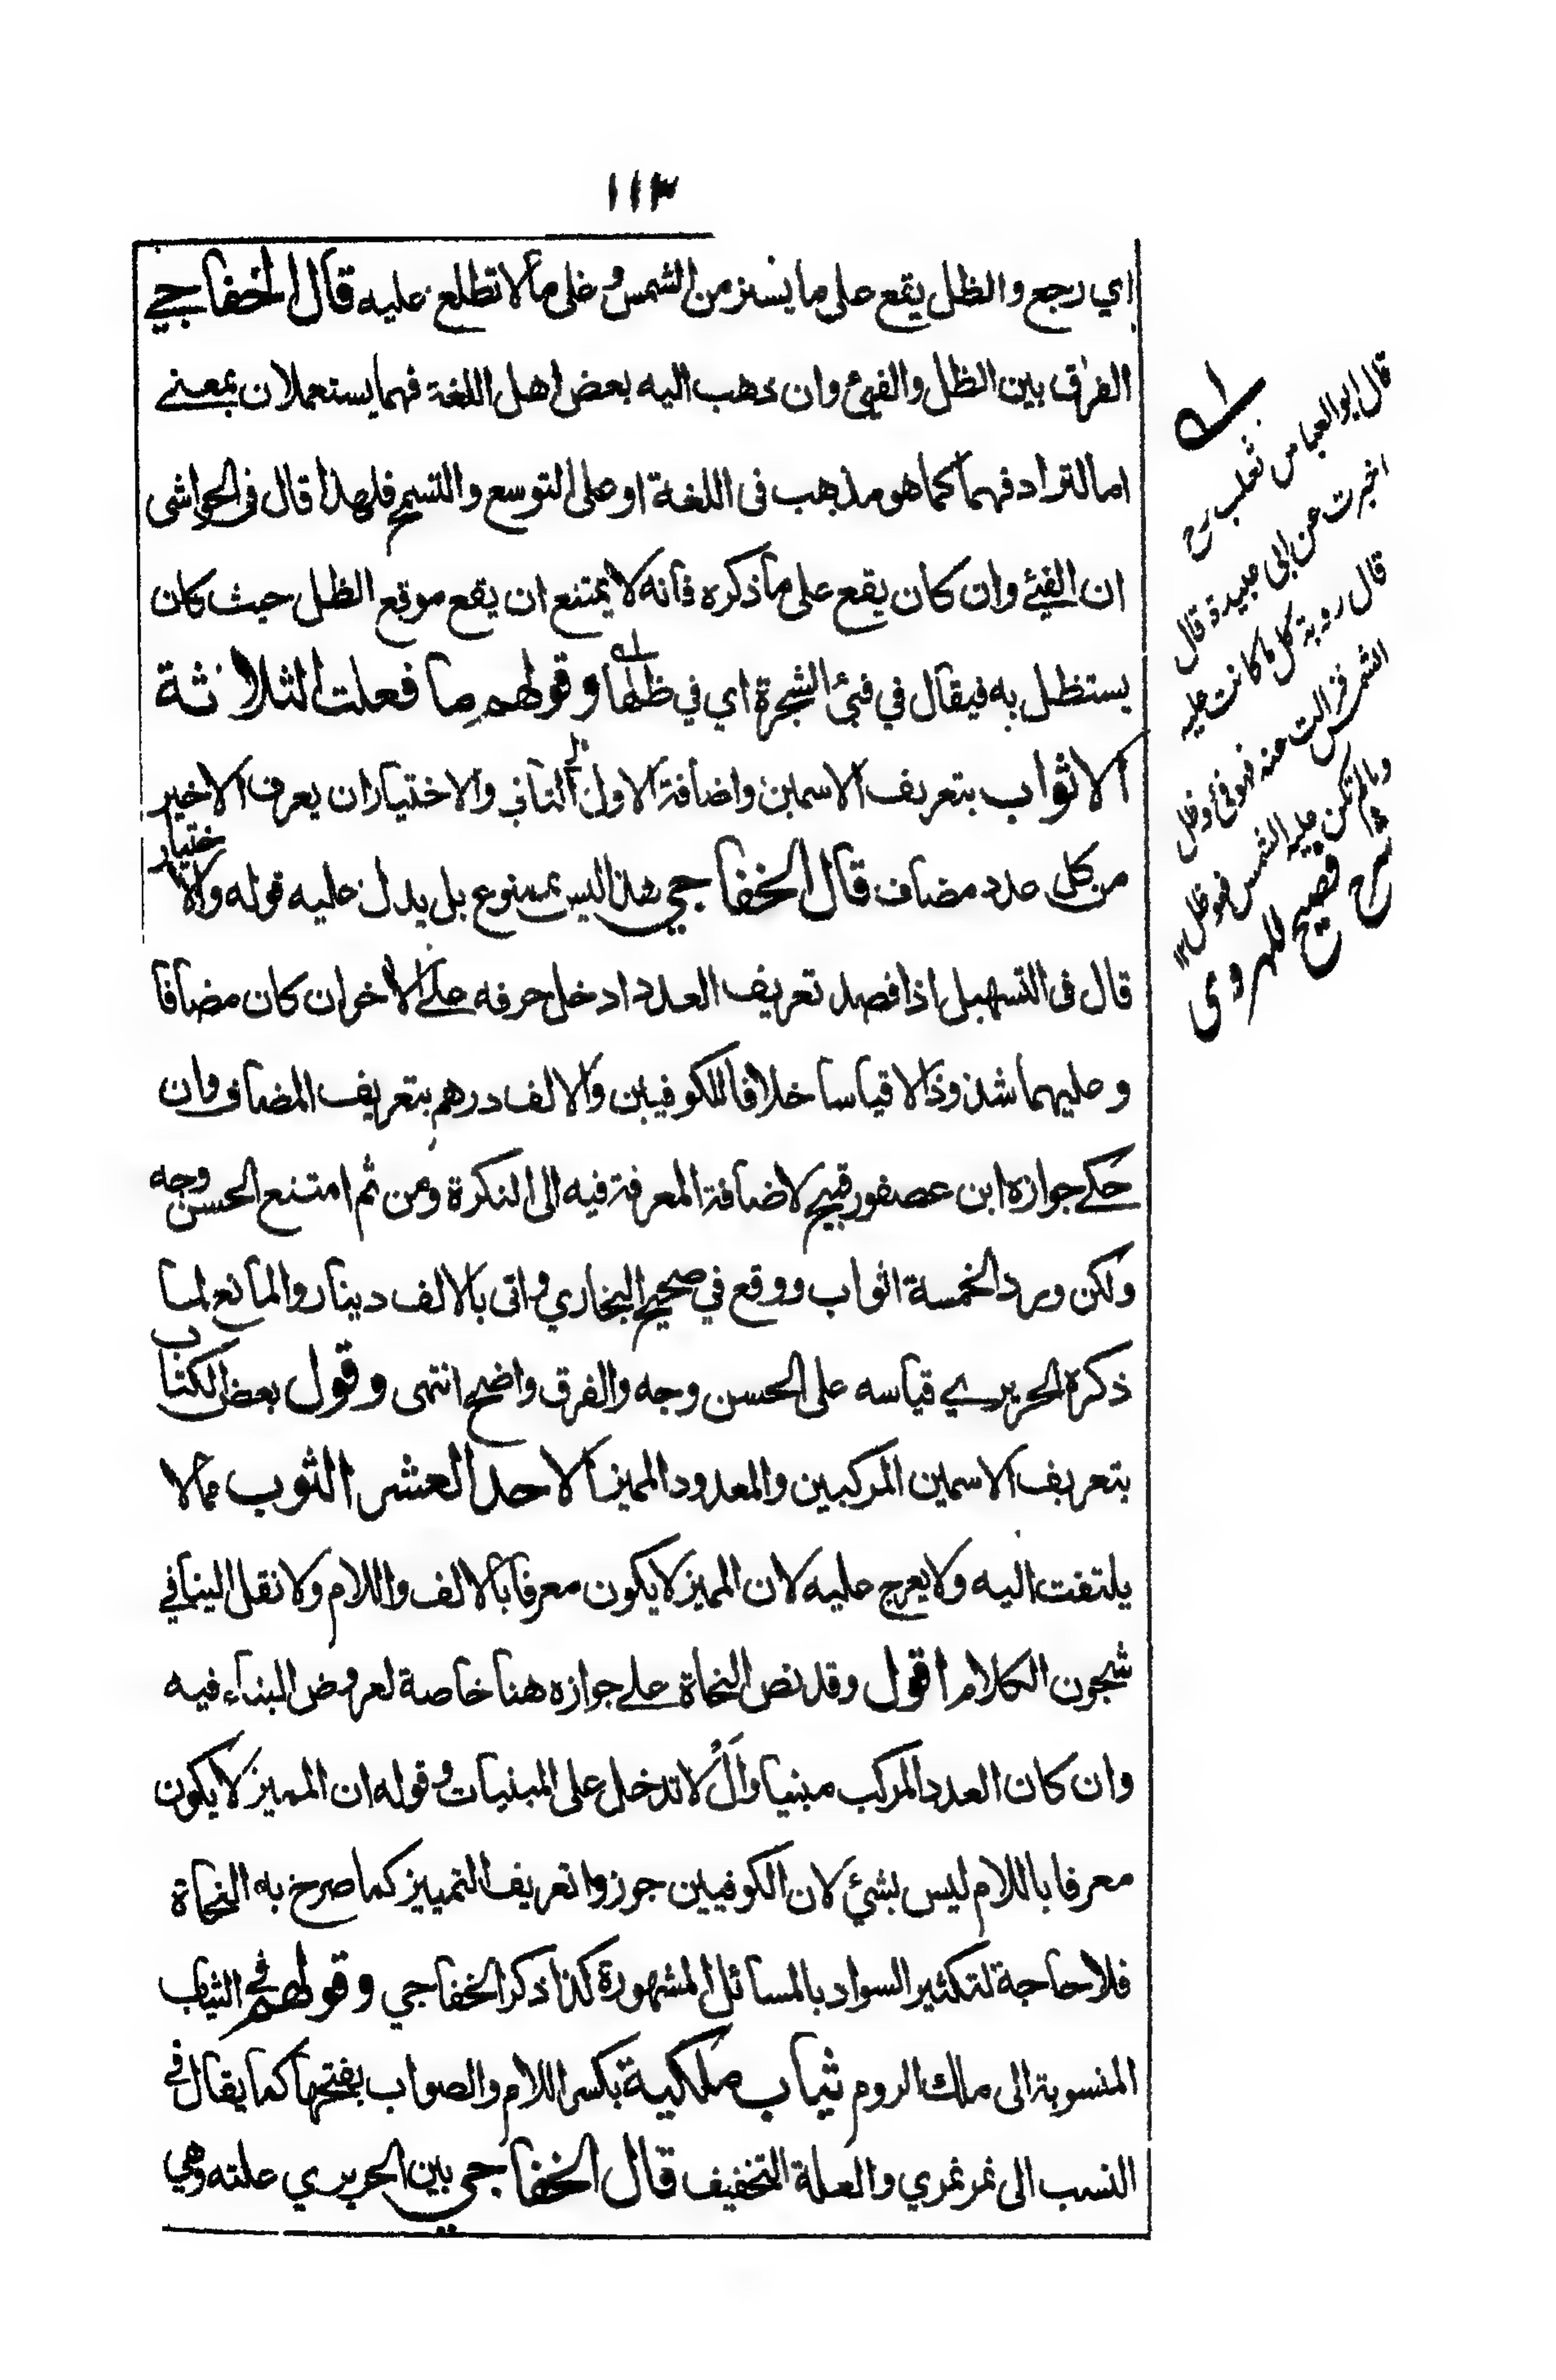 ١١٣
اي رجع والظل يقع على ما يستر من الشمس وعلى ما لا تطلع عليه قال الخفاجي
الفرق بين الظل والفيئ وان ذهب اليه بعض اهل اللغة فهما يستعملان بمعنى
اما لترادفهما كما هو مذهب فى اللغة او على التوسع والتسمح فلهذا قال فى الحواشى
ان الفيئ وان كان يقع على ما ذكره فانه لا يمتنع ان يقع موقع الظل حيث كان
يستظل به فيقال في فيئ الشجرة اي في ظلها وقولهم ما فعلت الثلاثة
الاثواب بتعريف الاسمين واضافة الاول الى الثاني والاختيار ان يعرف الاخير
من كل عدد مضاف قال الخفاجي هذا ليس بممنوع بل يدل عليه قوله والاختيار
قال فى التسهيل اذا قصد تعريف العدد ادخل حرفه على الاخر ان كان مضافا
وعليهما شذوذا لا قياسا خلافا للكوفيين والالف درهم بتعريف المضاف وان
حكى جوازه ابن عصفور قبيح لاضافة المعرفة فيه الى النكرة ومن ثم امتنع الحسن وجه
ولكن ورد الخمسة اثواب ووقع في صحيح البخاري واتى بالالف دينار والمانع لما
ذكره الحريري قياسه على الحسن وجه والفرق واضح انتهى وقول بعض الكتاب
بتعريف الاسمين المركبين والمعدود المميز الاحد العشر الثوب مما لا
يلتفت اليه ولا يعرج عليه لان المميز لا يكون معرفا بالالف واللام ولا نقل الينا في
شجون الكلام اقول وقد نص النحاة على جوازه هنا خاصة لعروض البناء فيه
وان كان العدد المركب مبنيا وأَلْ لا تدخل على المبنيات وقوله ان المميز لا يكون
معرفا باللام ليس بشيئ لان الكوفيين جوزوا تعريف التمييز كما صرح به النحاة
فلا حاجة لتكثير السواد بالمسائل المشهورة كذا ذكر الخفاجي وقولهم في الثياب
المنسوبة الى ملك الروم ثياب ملكية بكسر اللام والصواب بفتحها كما يقال في
النسب الى نمر نمري والعلة التخفيف قال الخفاجي بين الحريري علته وهي
قال ابو العباس ثعلب رح
اخبرت عن ابى عبيدة قال
قال روبة كل ما كانت عليه
الشمس فزالت عنه فهو فيئ وظل
وما لم تكن عليه الشمس فهو ظل ١٢
شرح فصيح للهروى